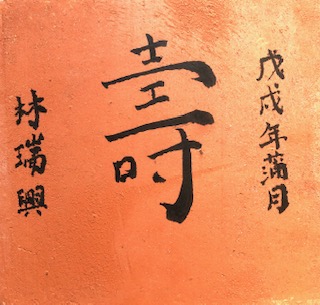 戊戌年蒲月
壽
林瑞興